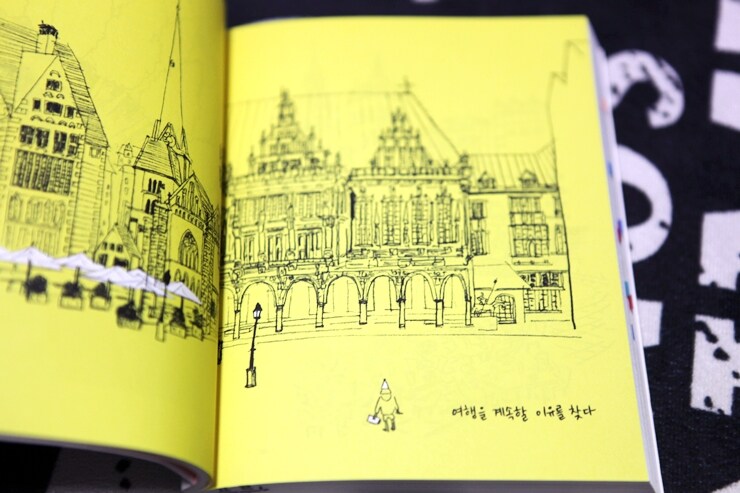 여행을 계속할 이유를 찾다